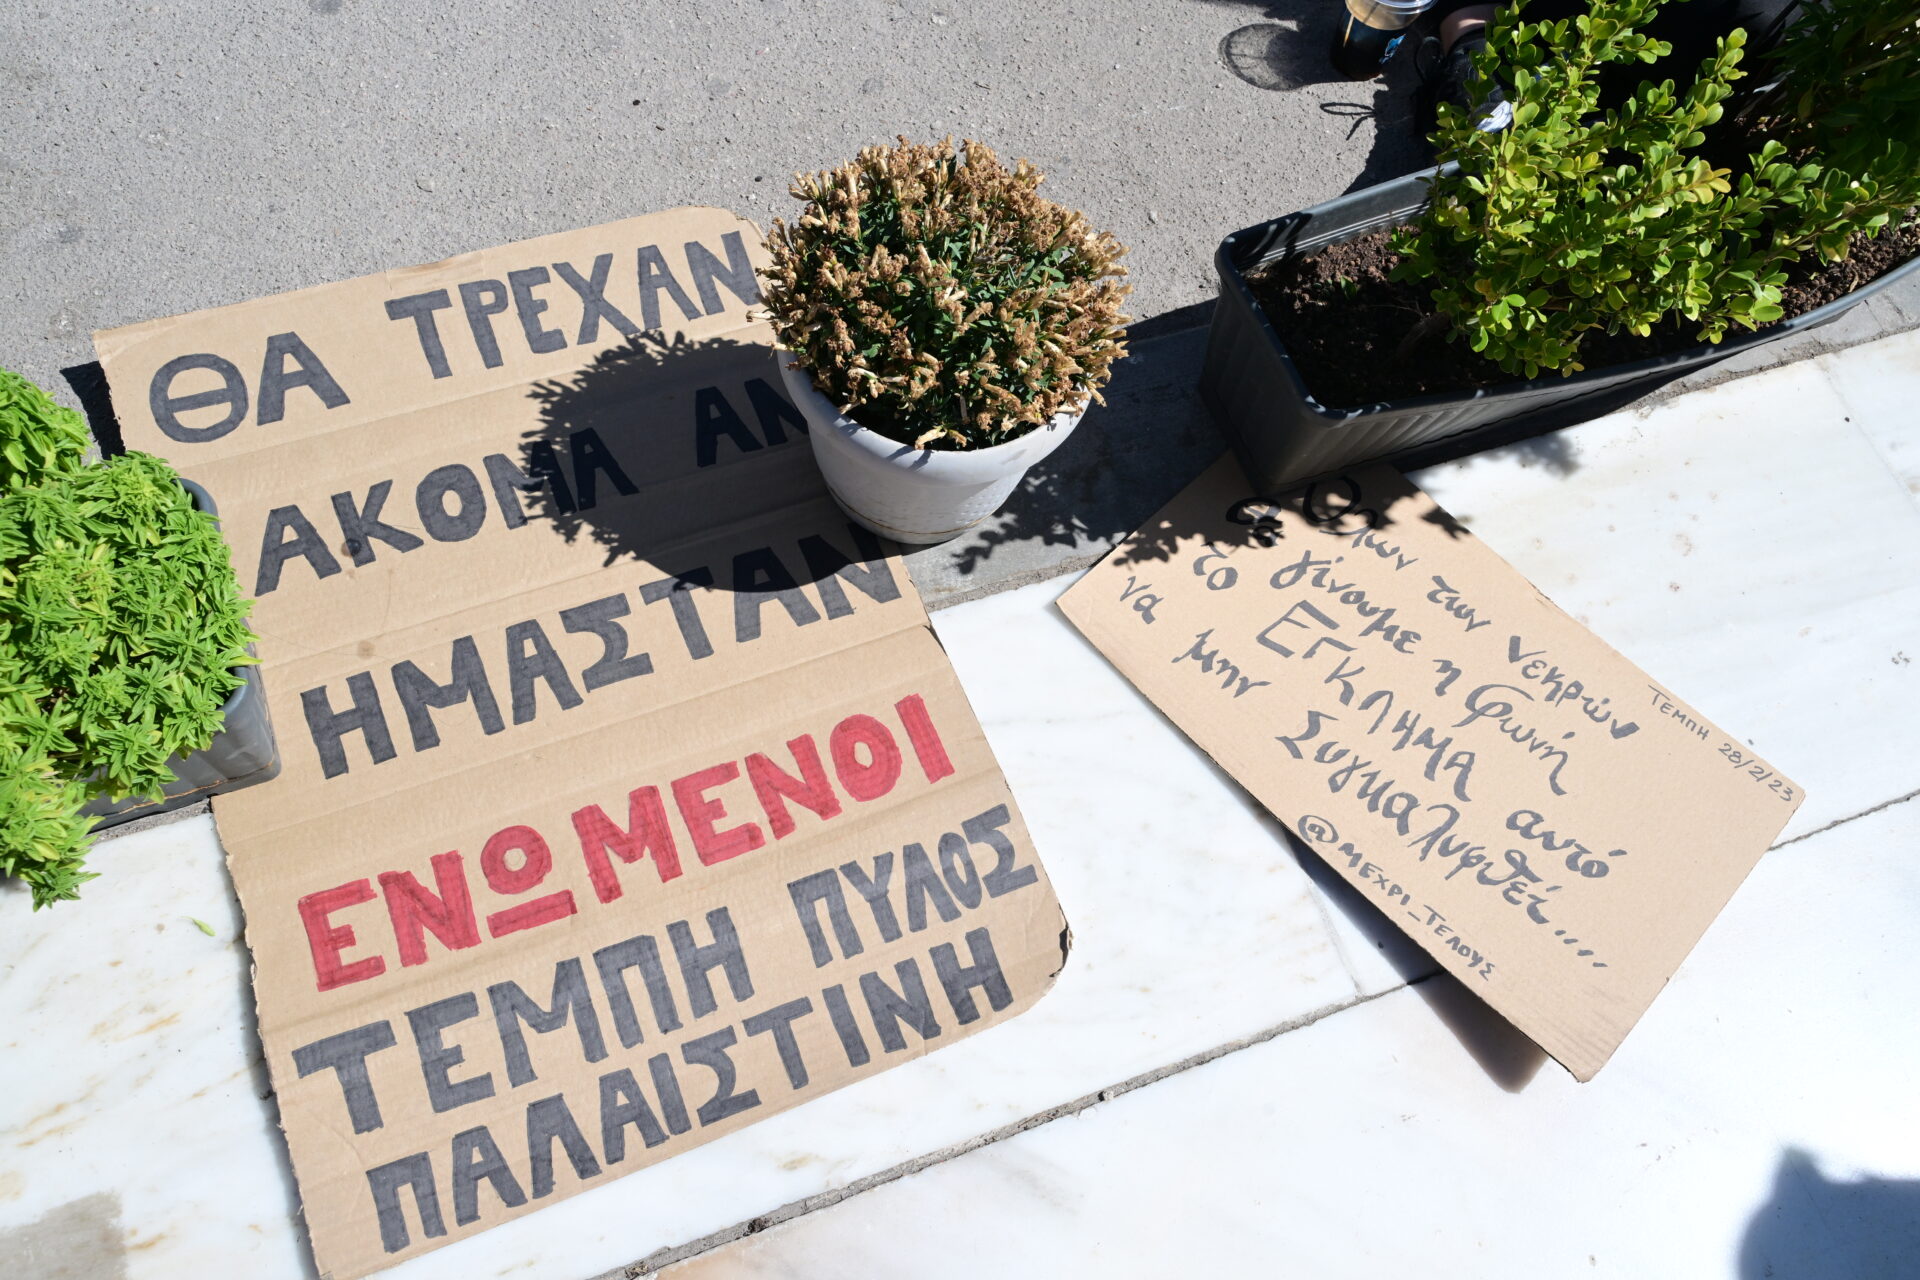 ΘΑ ΤΡΕΧΑΝ
ΑΚΟΜΑ ΑΝ
ΗΜΑΣΤΑΝ
ΕΝΩΜΕΝΟΙ
ΤΕΜΠΗ ΠΥΛΟΣ
ΠΑΛΑΙΣΤΙΝΗ
Όλων των νεκρών
ας γίνουμε η φωνή
το ΕΓΚΛΗΜΑ αυτό
να μην Συγκαλυφθεί...
ΤΕΜΠΗ 28/2/23
@ΜΕΧΡΙ_ΤΕΛΟΥΣ